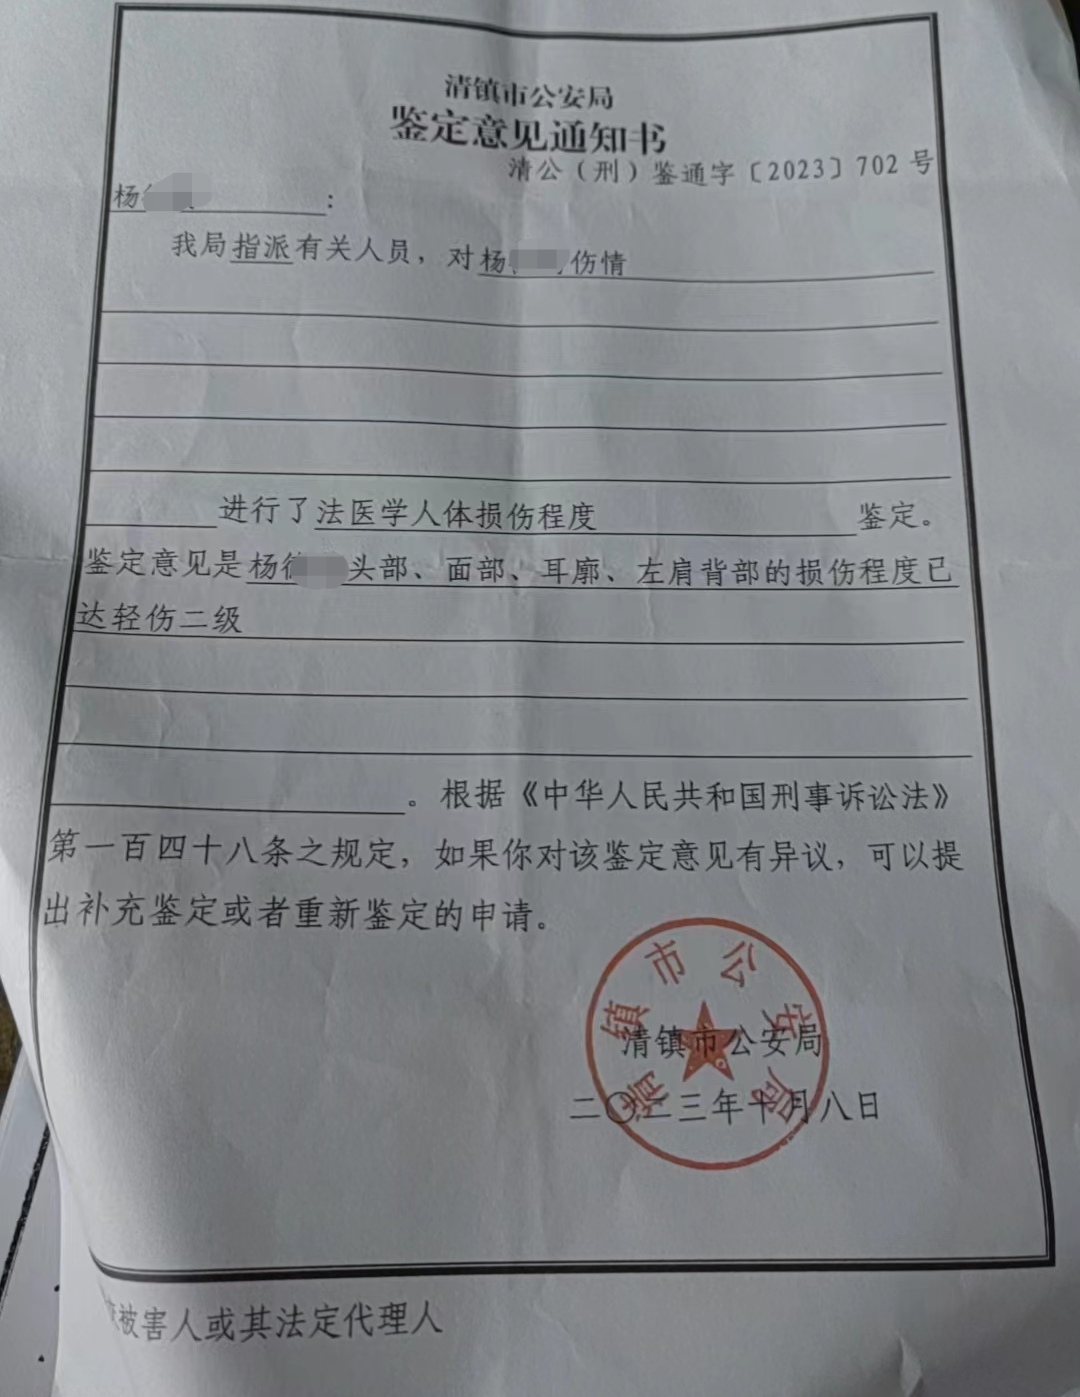 清镇市公安局
鉴定意见通知书
清公（刑）鉴通字〔2023〕702 号
杨 ：
我局指派有关人员，对杨 伤情
进行了法医学人体损伤程度 鉴定。
鉴定意见是杨 头部、面部、耳廓、左肩背部的损伤程度已
达轻伤二级
。根据《中华人民共和国刑事诉讼法》
第一百四十八条之规定，如果你对该鉴定意见有异议，可以提
出补充鉴定或者重新鉴定的申请。
清镇市公安局
清镇市公安局
二〇二三年十月八日
被害人或其法定代理人